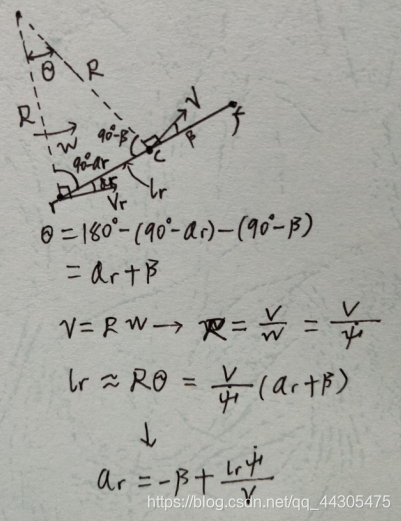 θ R
R
w
90°-β
90°-ar
V
β
f
c
lr
Vr
r
θ = 180° - (90° - ar) - (90° - β)
= ar + β
V = R w → R = V/w = V/ψ̇
lr ≈ Rθ = V/ψ̇ (ar + β)
↓
ar = -β + lrψ̇/V
https://blog.csdn.net/qq_44305475